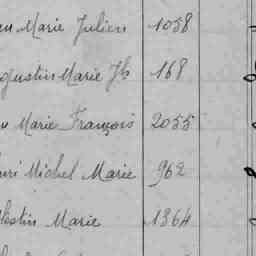 Marie Julien 1058
Marie Jh 168
Marie François 2055
Michel Marie 962
Marie 1364